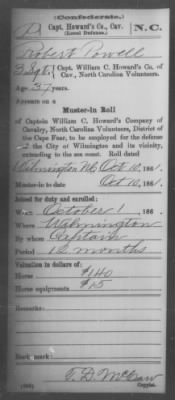 (Confederate.)
P Capt. Howard's Co., Cav., N.C.
(Local Defense.)
Robert Powell
3 Sgt., Capt. William C. Howard's Co. of
Cav., North Carolina Volunteers.
Age 37 years.
Appears on a
Muster-in Roll
of Captain William C. Howard's Company of
Cavalry, North Carolina Volunteers, District of
the Cape Fear, to be employed for the defense
of the City of Wilmington and its vicinity,
extending to the sea coast. Roll dated
Wilmington N.C., Oct 10, 1861.
Muster-in to date Oct 10, 1861.
Joined for duty and enrolled:
When October 1, 186 .
Where Wilmington
By whom Captain
Period 12 months
Valuation in dollars of:
Horse $140
Horse equipments $15
Remarks:
Book mark:
T. D. McCraw
Copyist.